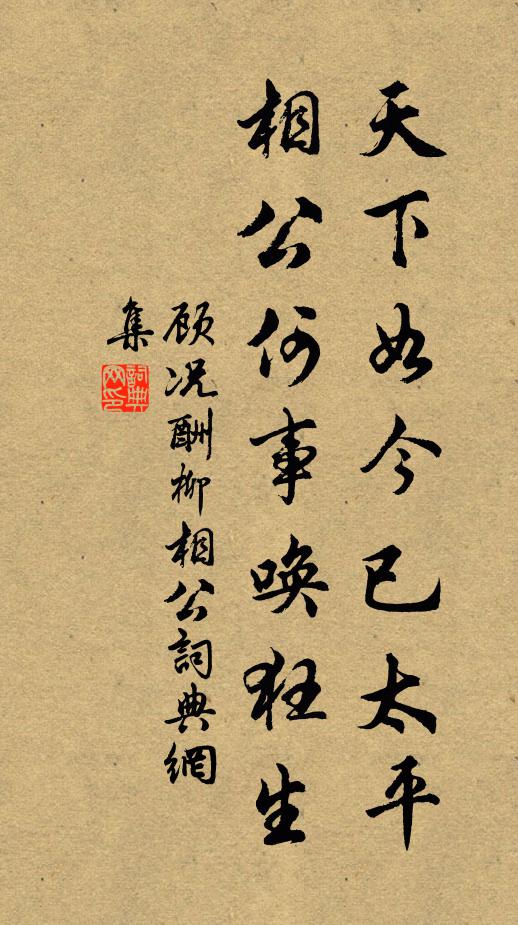 天下如今已太平
相公何事唤狂生
顾况酬柳相公詞典網
集
詞典
网印